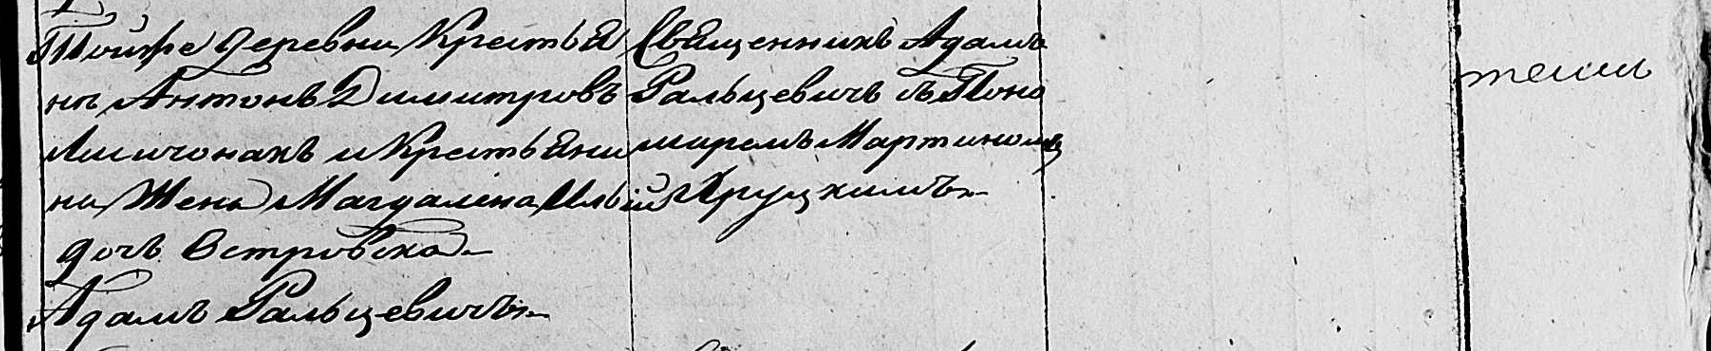 Тойже деревни Крестья
нъ Антонъ Димитровъ
и Крестьяни
на Жена Магдалена
дочь Островска
Адамъ Ральцевичъ
Священникъ Адамъ
Ральцевичъ съ Поно
маремъ Мартиномъ
Хруцкимъ